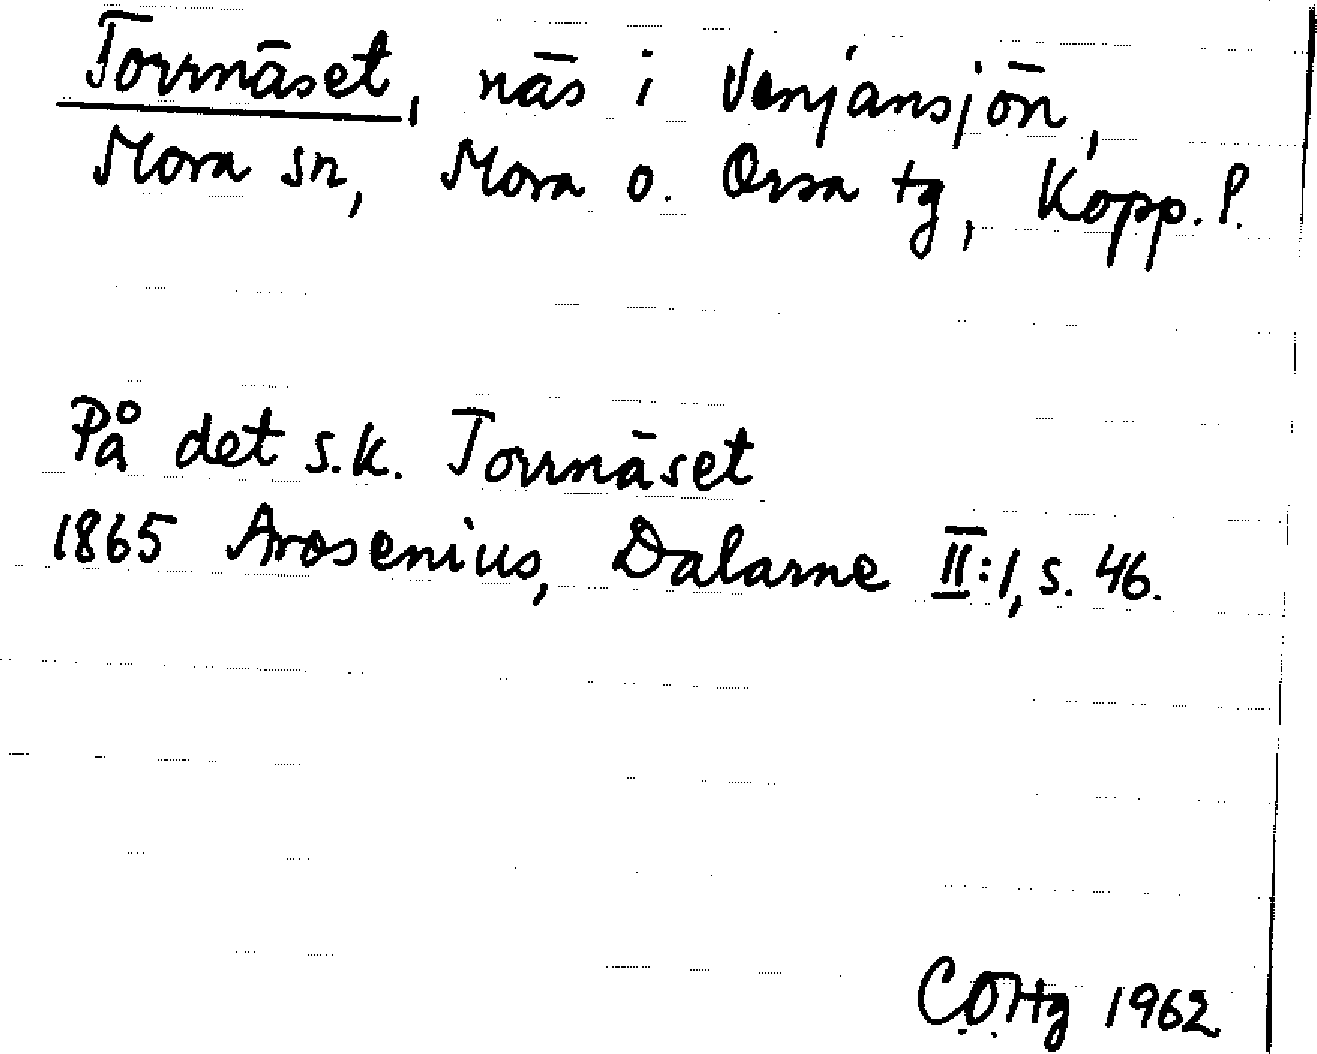 Torrnäset, näs i Venjansjön,
Mora sn, Mora o. Orsa tg, Kopp. l.
På det s.k. Torrnäset
1865 Arosenius, Dalarne II:1, s. 46.
C.O.Htg 1962